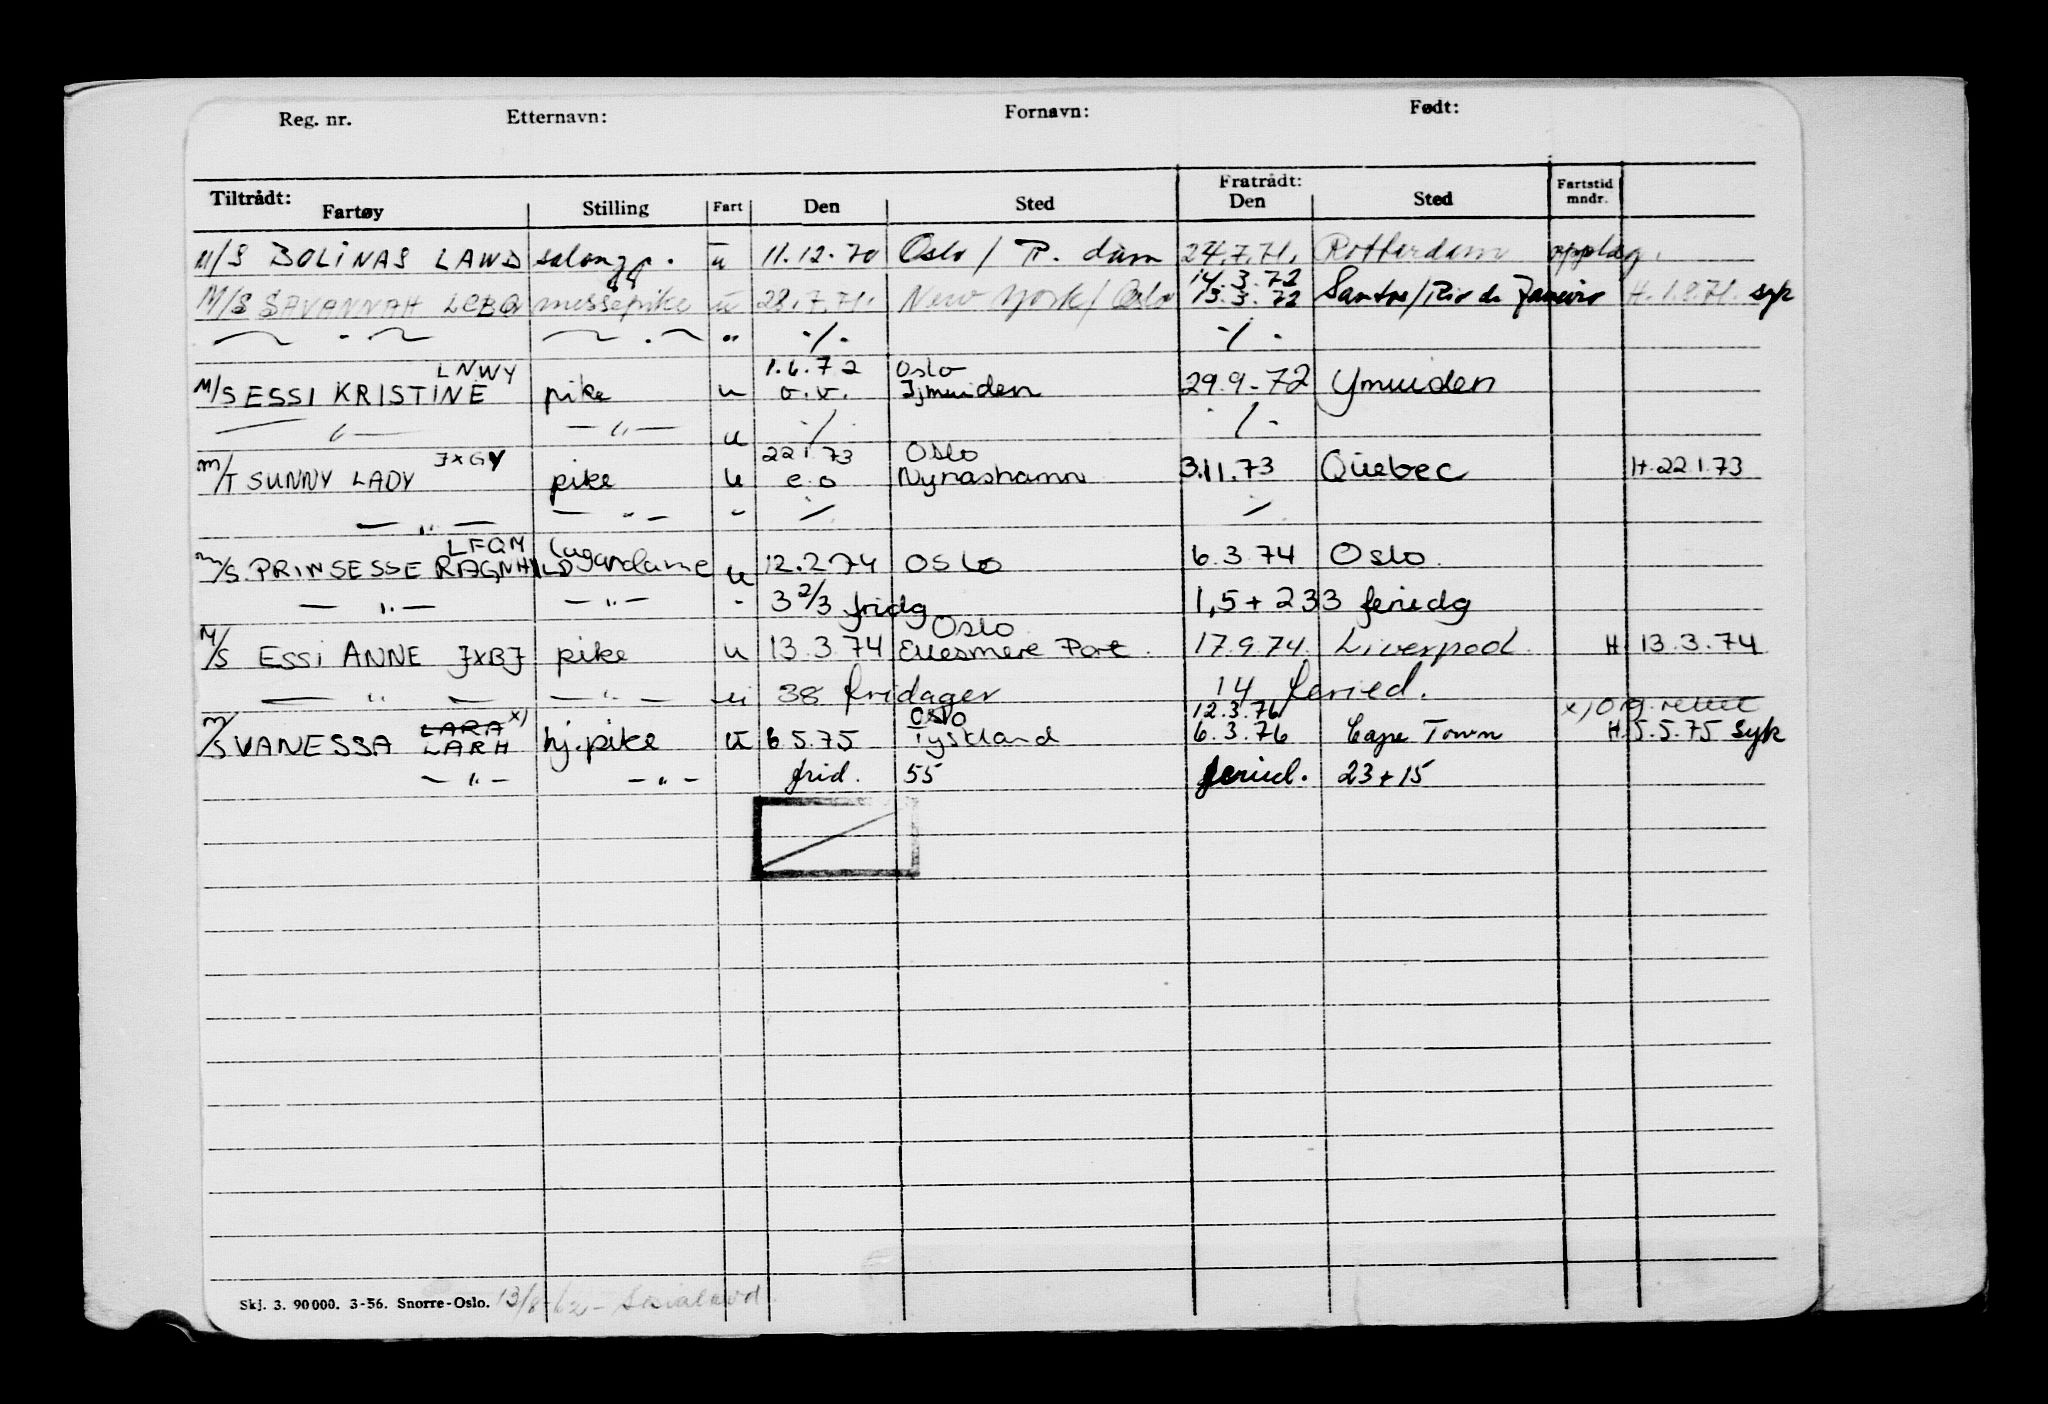 Reg. nr. Etternavn: Fornavn: Født:
Tiltrådt: Fratrådt: Fartstid
Fartøy Stilling Fart Den Sted Den Sted mndr.
M/S BOLINAS LAWD salongp. u 11.12.70 Oslo / R.dam 24.7.71. Rotterdam opplag.
14.3.72
M/S SAVANNAH LCBQ messepike u 28.7.71. New York / Oslo 13.3.72 Santos/Rio de Janeiro H. 1.8.71. syk
— " — — " — " -/- -/-
LNWY 1.6.72 Oslo
M/S ESSI KRISTINE pike u o.v. Ijmuiden 29.9-72 Ymuiden
— " — — " — u -/- -/-
JXGY 22 1.73 Oslo
M/T SUNNY LADY pike u e.o Nynashamn 3.11.73 Quebec H. 22 1.73
— " — — " — " -/- -/-
LFQM
M/S. PRINSESSE RAGNHILD lugardame u 12.2.74 OSLO 6.3.74 Oslo.
— " — — " — - 3 2/3 fridg 1,5 + 233 feriedg
Oslo
M/S ESSI ANNE JXBJ pike u 13.3.74 Ellesmere Port. 17.9.74. Liverpool. H. 13.3.74
— " — — " — u 38 fridager 14 feried.
LARA x) Oslo 12.3.76 x) Org. rettet
M/S VANESSA LARH hj.pike u 6 5.75 Tyskland 6.3.76 Cape Town H. 5.5.75 Syk
— " — — " — frid. 55 feried. 23 + 15
Skj. 3. 90 000. 3-56. Snorre-Oslo. 13/8-62 -